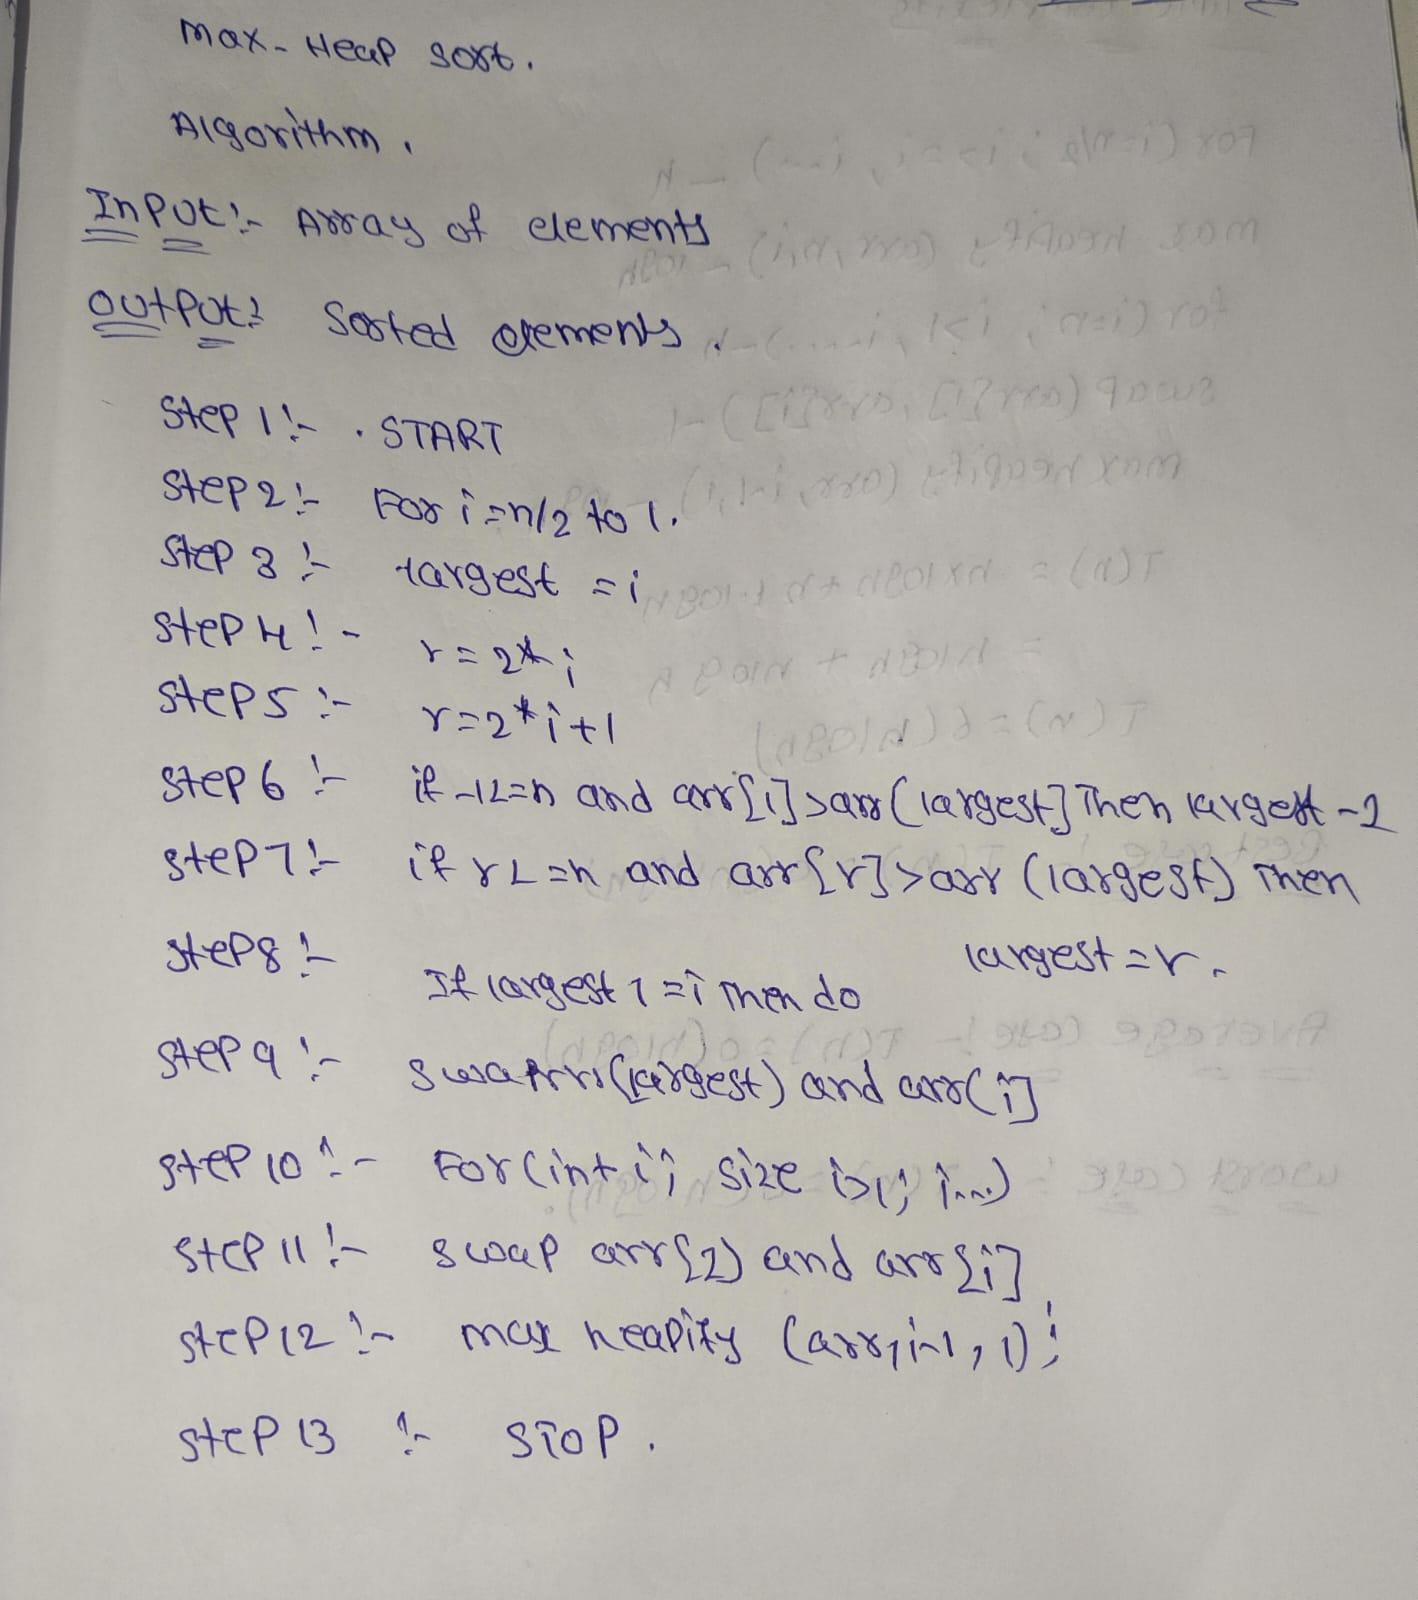 Max-Heap sort.
Algorithm.
Input:- Array of elements
Output: Sorted elements.
Step 1:- . START
Step 2:- For i=n/2 to 1.
Step 3:- largest = i
Step 4:- r=2*i
Step 5:- r=2*i+1
Step 6:- if -lL=n and arr[i]>arr(largest] Then largest -2
Step 7:- if rL=n and arr[r]>arr (largest) Then
largest=r.
Step 8:- If largest 1=i Then do
Step 9:- (largest) and arr(i]
Step 10:- For(int i; size i>1; i...)
Step 11:- swap arr[2) and arr[i]
Step 12:- max heapify (arr,i-1,1);
Step 13:- STOP.